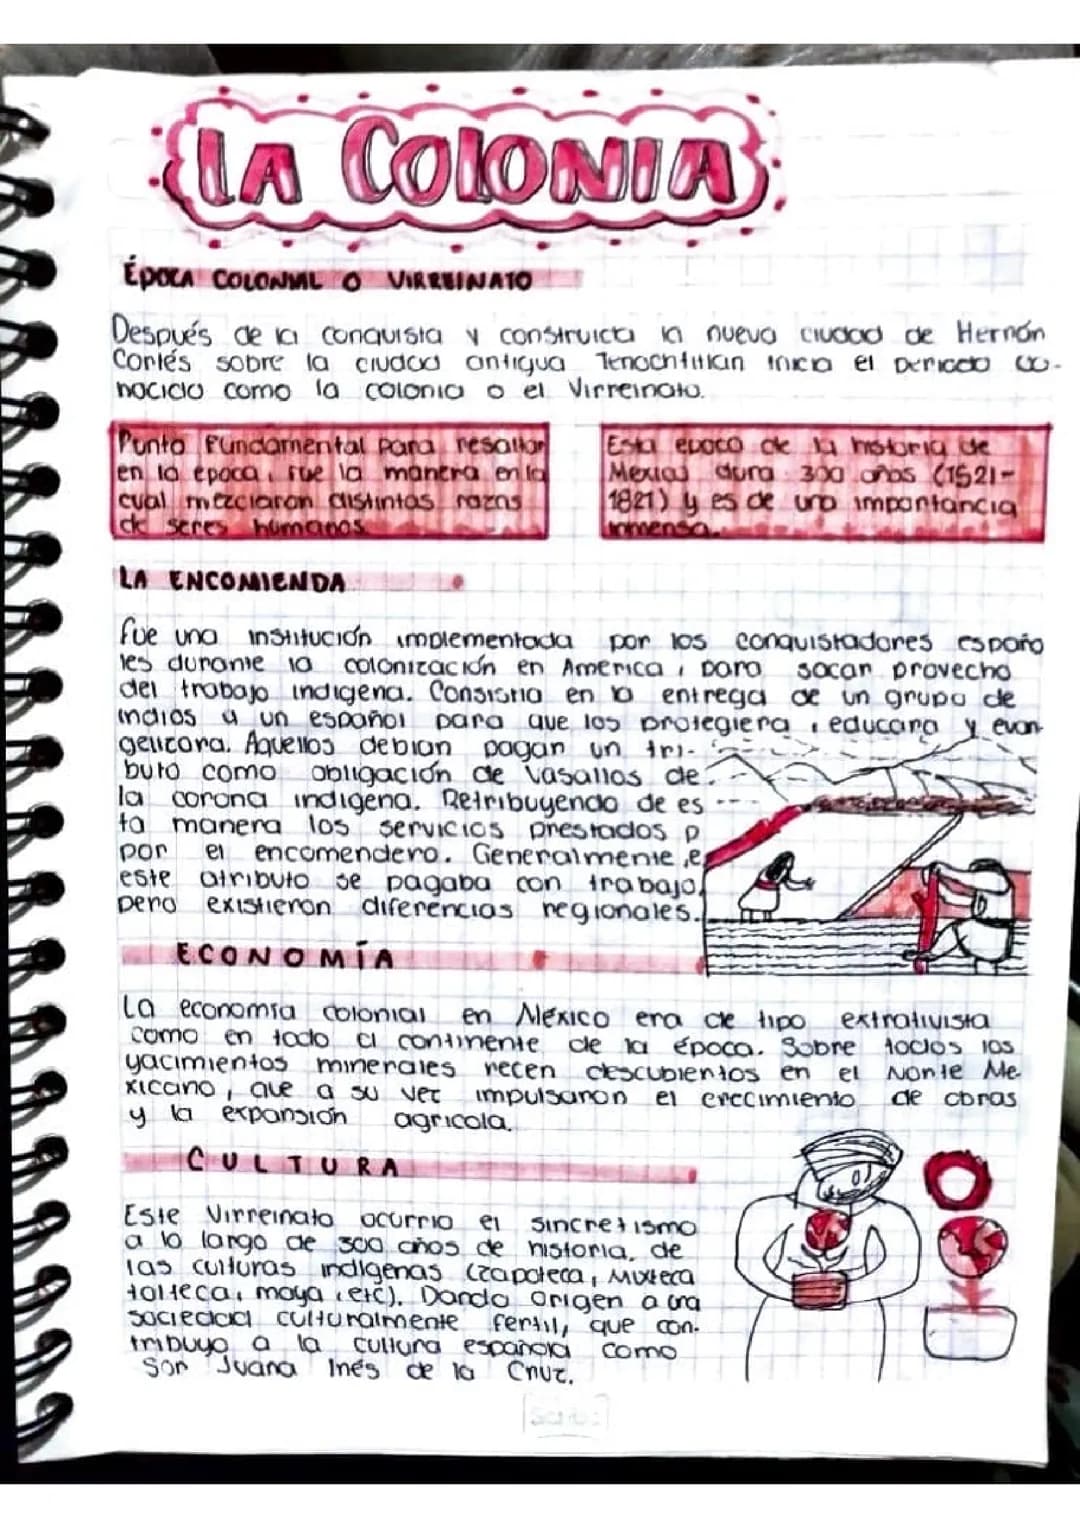 LA COLONIA
ÉPOCA COLONIAL O VIRREINATO
Después de la conquista y construida la nueva ciudad de Hernán
Cortés sobre la ciudad antigua Tenochtitlan inicia el periodo co-
nocido como la colonia o el Virreinato.
Punto fundamental para resaltar
en la epoca, fue la manera en la
cual mezclaron distintas razas
de seres humanos
Esta epoca de la historia de
Mexico dura 300 años (1521-
1821) y es de una importancia
inmensa.
LA ENCOMIENDA
fue una institución implementada por los conquistadores españo
les durante la colonización en America, para sacar provecho
del trabajo indigena. Consistia en la entrega de un grupo de
indios a un español para que los protegiera, educara y evan-
gelizara. Aquellos debian pagar un tri-
buto como obligación de vasallos de
la corona indigena. Retribuyendo de es
ta manera los servicios prestados p
por el encomendero. Generalmente, e
este atributo se pagaba con trabajo,
pero existieron diferencias regionales.
ECONOMÍA
La economía colonial en México era de tipo extrativista
como en todo el continente de la época. Sobre todos los
yacimientos minerales recen descubientos en el Norte Me
xicano, que a su vez impulsaron el creccimiento de obras
y la expansión agricola.
CULTURA
Este Virreinato ocurrio el sincretismo
a lo largo de 300 años de historia, de
las culturas indigenas (zapoteca, Mixteca
tolteca, maya, etc). Dando origen a una
sociedad culturalmente fertil, que con-
tribuyo a la cultura española como
Sor Juana Inés de la Cruz.
Scribe